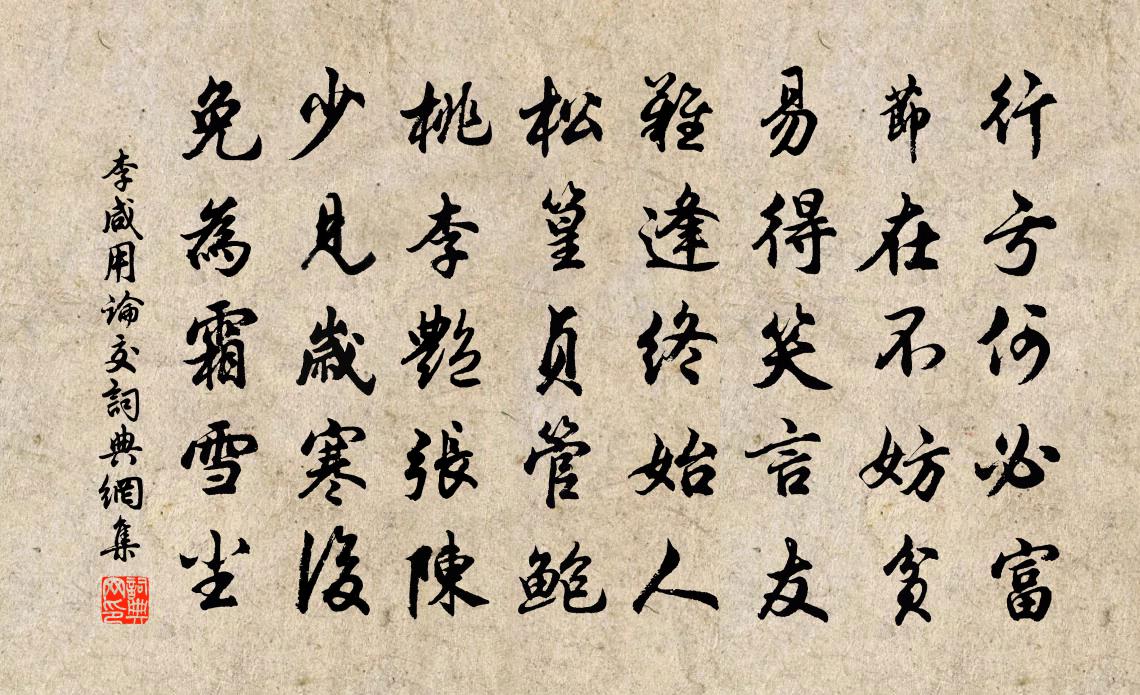 行亏何必富
節在不妨貧
易得笑言友
難逢終始人
松篁貞管鮑
桃李艷張陳
少見歲寒後
免為霜雪尘
李咸用論交詞典網集
詞典
网印